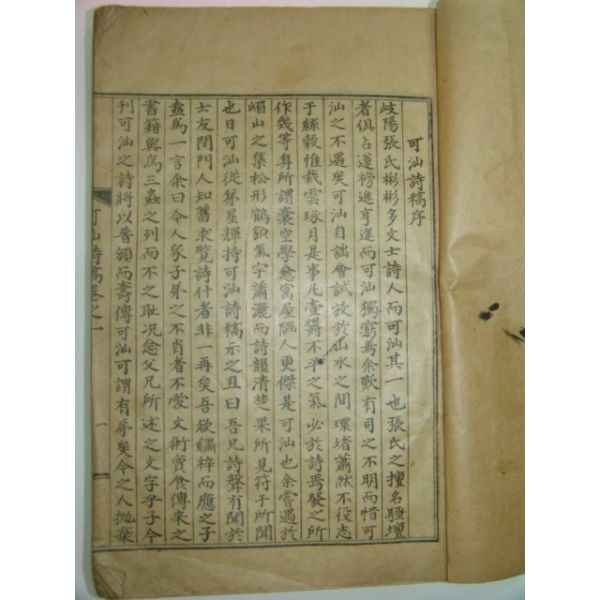 可汕詩稿序
岐陽張氏彬彬多文士詩人而可汕其一也張氏之擅名騷壇
者俱占蓮榜進亨逵而可汕獨窮焉余歎有司之不明而惜可
汕之不遇矣可汕自詘會試放於山水之間環堵蕭然不役志
于絲穀惟栽雲琢月是事凡壹欝不平之氣必於詩焉發之所
作幾等身所謂囊空學愈富屋陋人更傑是可汕也余嘗遇於
嵋山之集松形鶴貌氣宇瀟灑而詩韻清楚果所見符于所聞
也日可汕從弟星輝持可汕詩稿示之且曰吾兄詩聲有聞於
士友間門人知舊來覽詩什者非一再矣吾欲繡梓而應之子
盍爲一言余曰今人家子弟之不肖者不愛文術賣食傳來之
書籍與爲三蟲之列而不之耻况念父兄所述之文字乎子今
刊可汕之詩將以普頒而壽傳可汕可謂有弟矣今之人抛棄
可汕詩稿卷之一
一